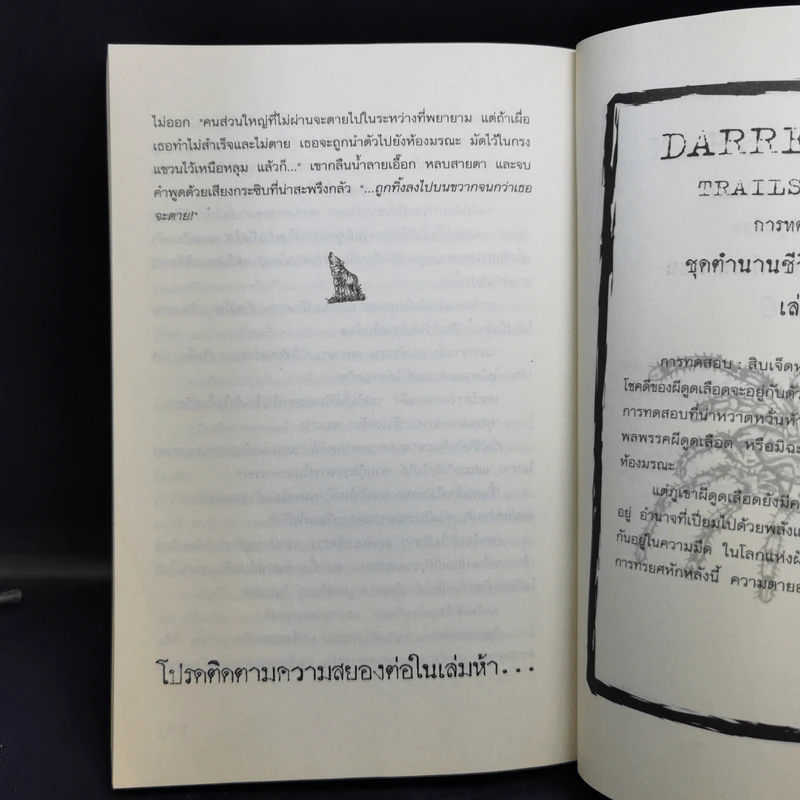 ไม่ออก "คนส่วนใหญ่ที่ไม่ผ่านจะตายไปในระหว่างที่พยายาม แต่ถ้าเผื่อ
เธอทำไม่สำเร็จและไม่ตาย เธอจะถูกนำตัวไปยังห้องมรณะ มัดไว้ในกรง
แขวนไว้เหนือหลุม แล้วก็..." เขากลืนน้ำลายเอื๊อก หลบสายตา และจบ
คำพูดด้วยเสียงกระซิบที่น่าสะพรึงกลัว "...ถูกทิ้งลงไปบนขวากจนกว่าเธอ
จะตาย!"
โปรดติดตามความสยองต่อในเล่มห้า...
DARRE
TRAILS
การทด
ชุดตำนานชีวิ
เล่
การทดสอบ : สิบเจ็ดห
โชคดีของผีดูดเลือดจะอยู่กับตัว
การทดสอบที่น่าหวาดหวั่นห้
พลพรรคผีดูดเลือด หรือมิฉะ
ห้องมรณะ
แต่ภูเขาผีดูดเลือดยังมีค
อยู่ อำนาจที่เปี่ยมไปด้วยพลังแ
กันอยู่ในความมืด ในโลกแห่งผี
การทรยศหักหลังนี้ ความตายอ